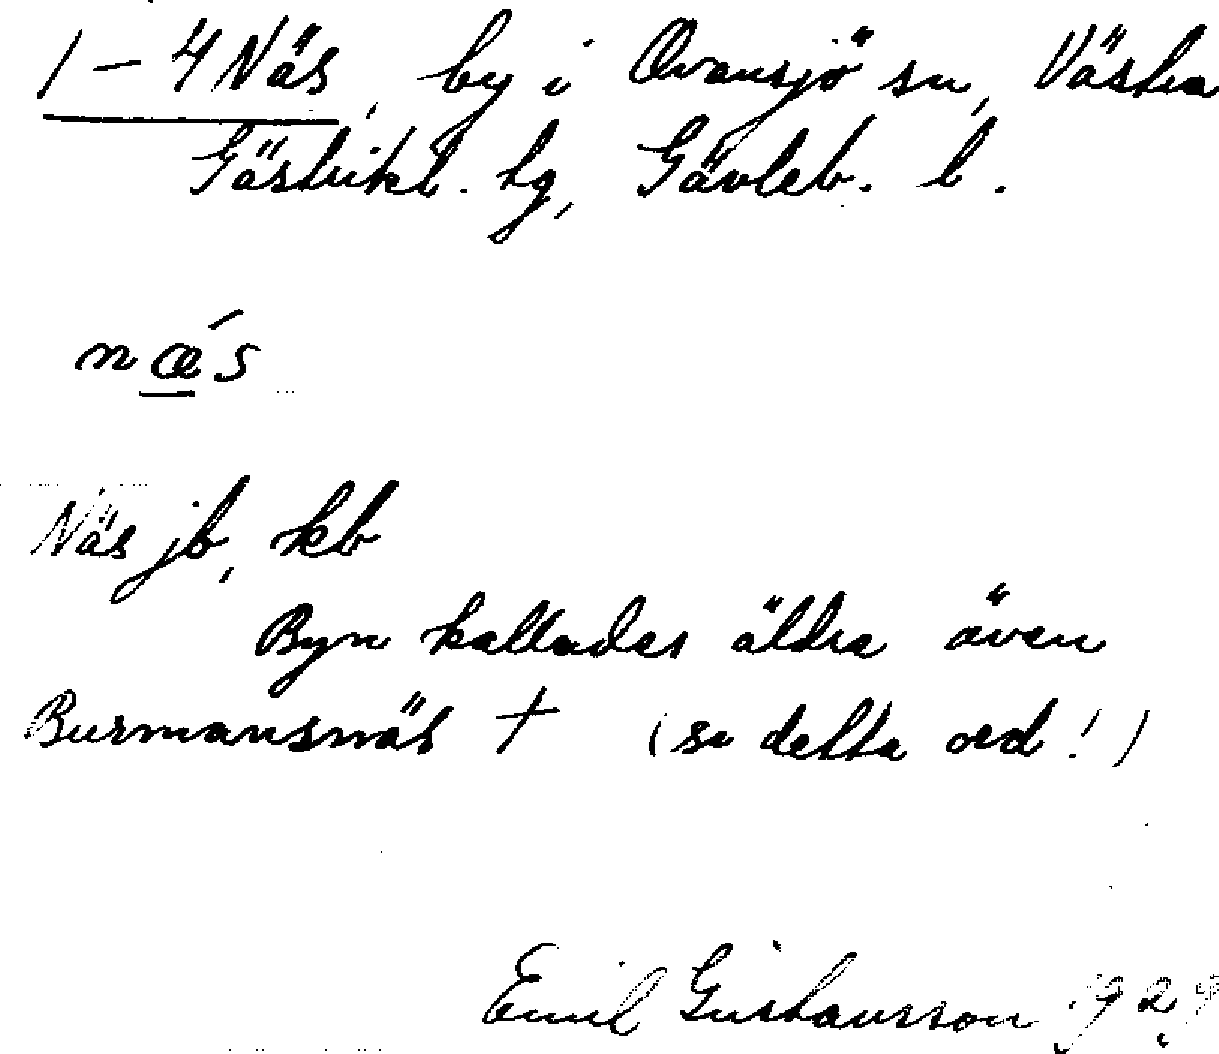 1–4 Näs, by i Ovansjö sn, Västra
Gästrikl. tg, Gävleb. l.
næ´s
Näs jb, kb
Byn kallades äldre även
Burmansnäs † (se detta ord!)
Emil Gustavsson